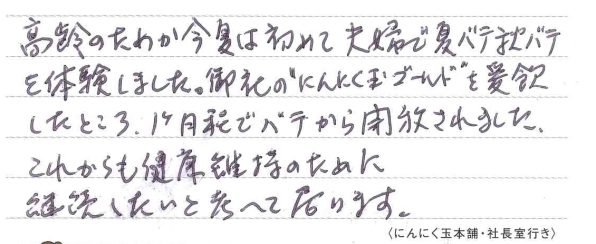 高齢のためか今夏は初めて夫婦で夏バテ秋バテ
を体験しました。御社の"にんにく玉ゴールド"を愛飲
したところ、1ヶ月程でバテから開放されました、
これからも健康維持のために
継続したいと考へて居ります。
〈にんにく玉本舗・社長室行き〉